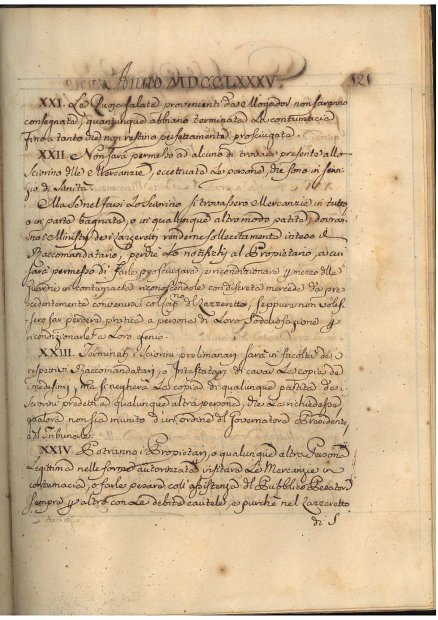 Anno MDCCLXXXV. 121
XXI. Le Quoja salate provenienti da Mogador non saranno
consegnate, quantunque abbiano terminata la contumacia
fino a tanto che non restino perfettamente prosciugate.
XXII. Non sarà permesso ad alcuno di trovarsi presente alla
Sciorino delle Mercanzie, eccettuate le persone, che sono in servi-
zio di Sanità.
Ma se nel farsi lo Sciorino si trovassero Mercanzie in tutto
o in parte bagnate, o in qualunque altro modo patite, dovran-
no i Ministri dei Lazzeretti renderne sollecitamente inteso il
Raccomandatario, perchè lo notifichi al Proprietario, a cui
sarà permesso di farle prosciugare, e ricondizionare per mezzo delle
Guardie in contumacia riconoscendole con discreta mercede da pre-
cedentemente convenirsi col Cap.no del Lazzeretto, seppure non volis-
sero far prendere pratica a persona di Loro Sodisfazione per
ricondizionarle a Loro genio.
XXIII. Terminati i Sciorini preliminari sarà in facoltà dei
respettivi Raccomandatarj, o Intestatarj di cavar le copie de
medesimi, ma si negherà la copia di qualunque partita dei
Sciorini predetti a qualunque altra persona che la richiedesse
qualora non sia munito d'un ordine del Governatore Presidente
del Tribunale.
XXIV. Potranno i Propietarj, o qualunque altra Persona
Legittima nelle forme autorizzata visitare Le Mercanzie in
contumacia, o farle pesare coll'assistenza del Pubblico Pesatore
sempre per altro con Le debite cautele, e purchè nel Lazzeretto
di S